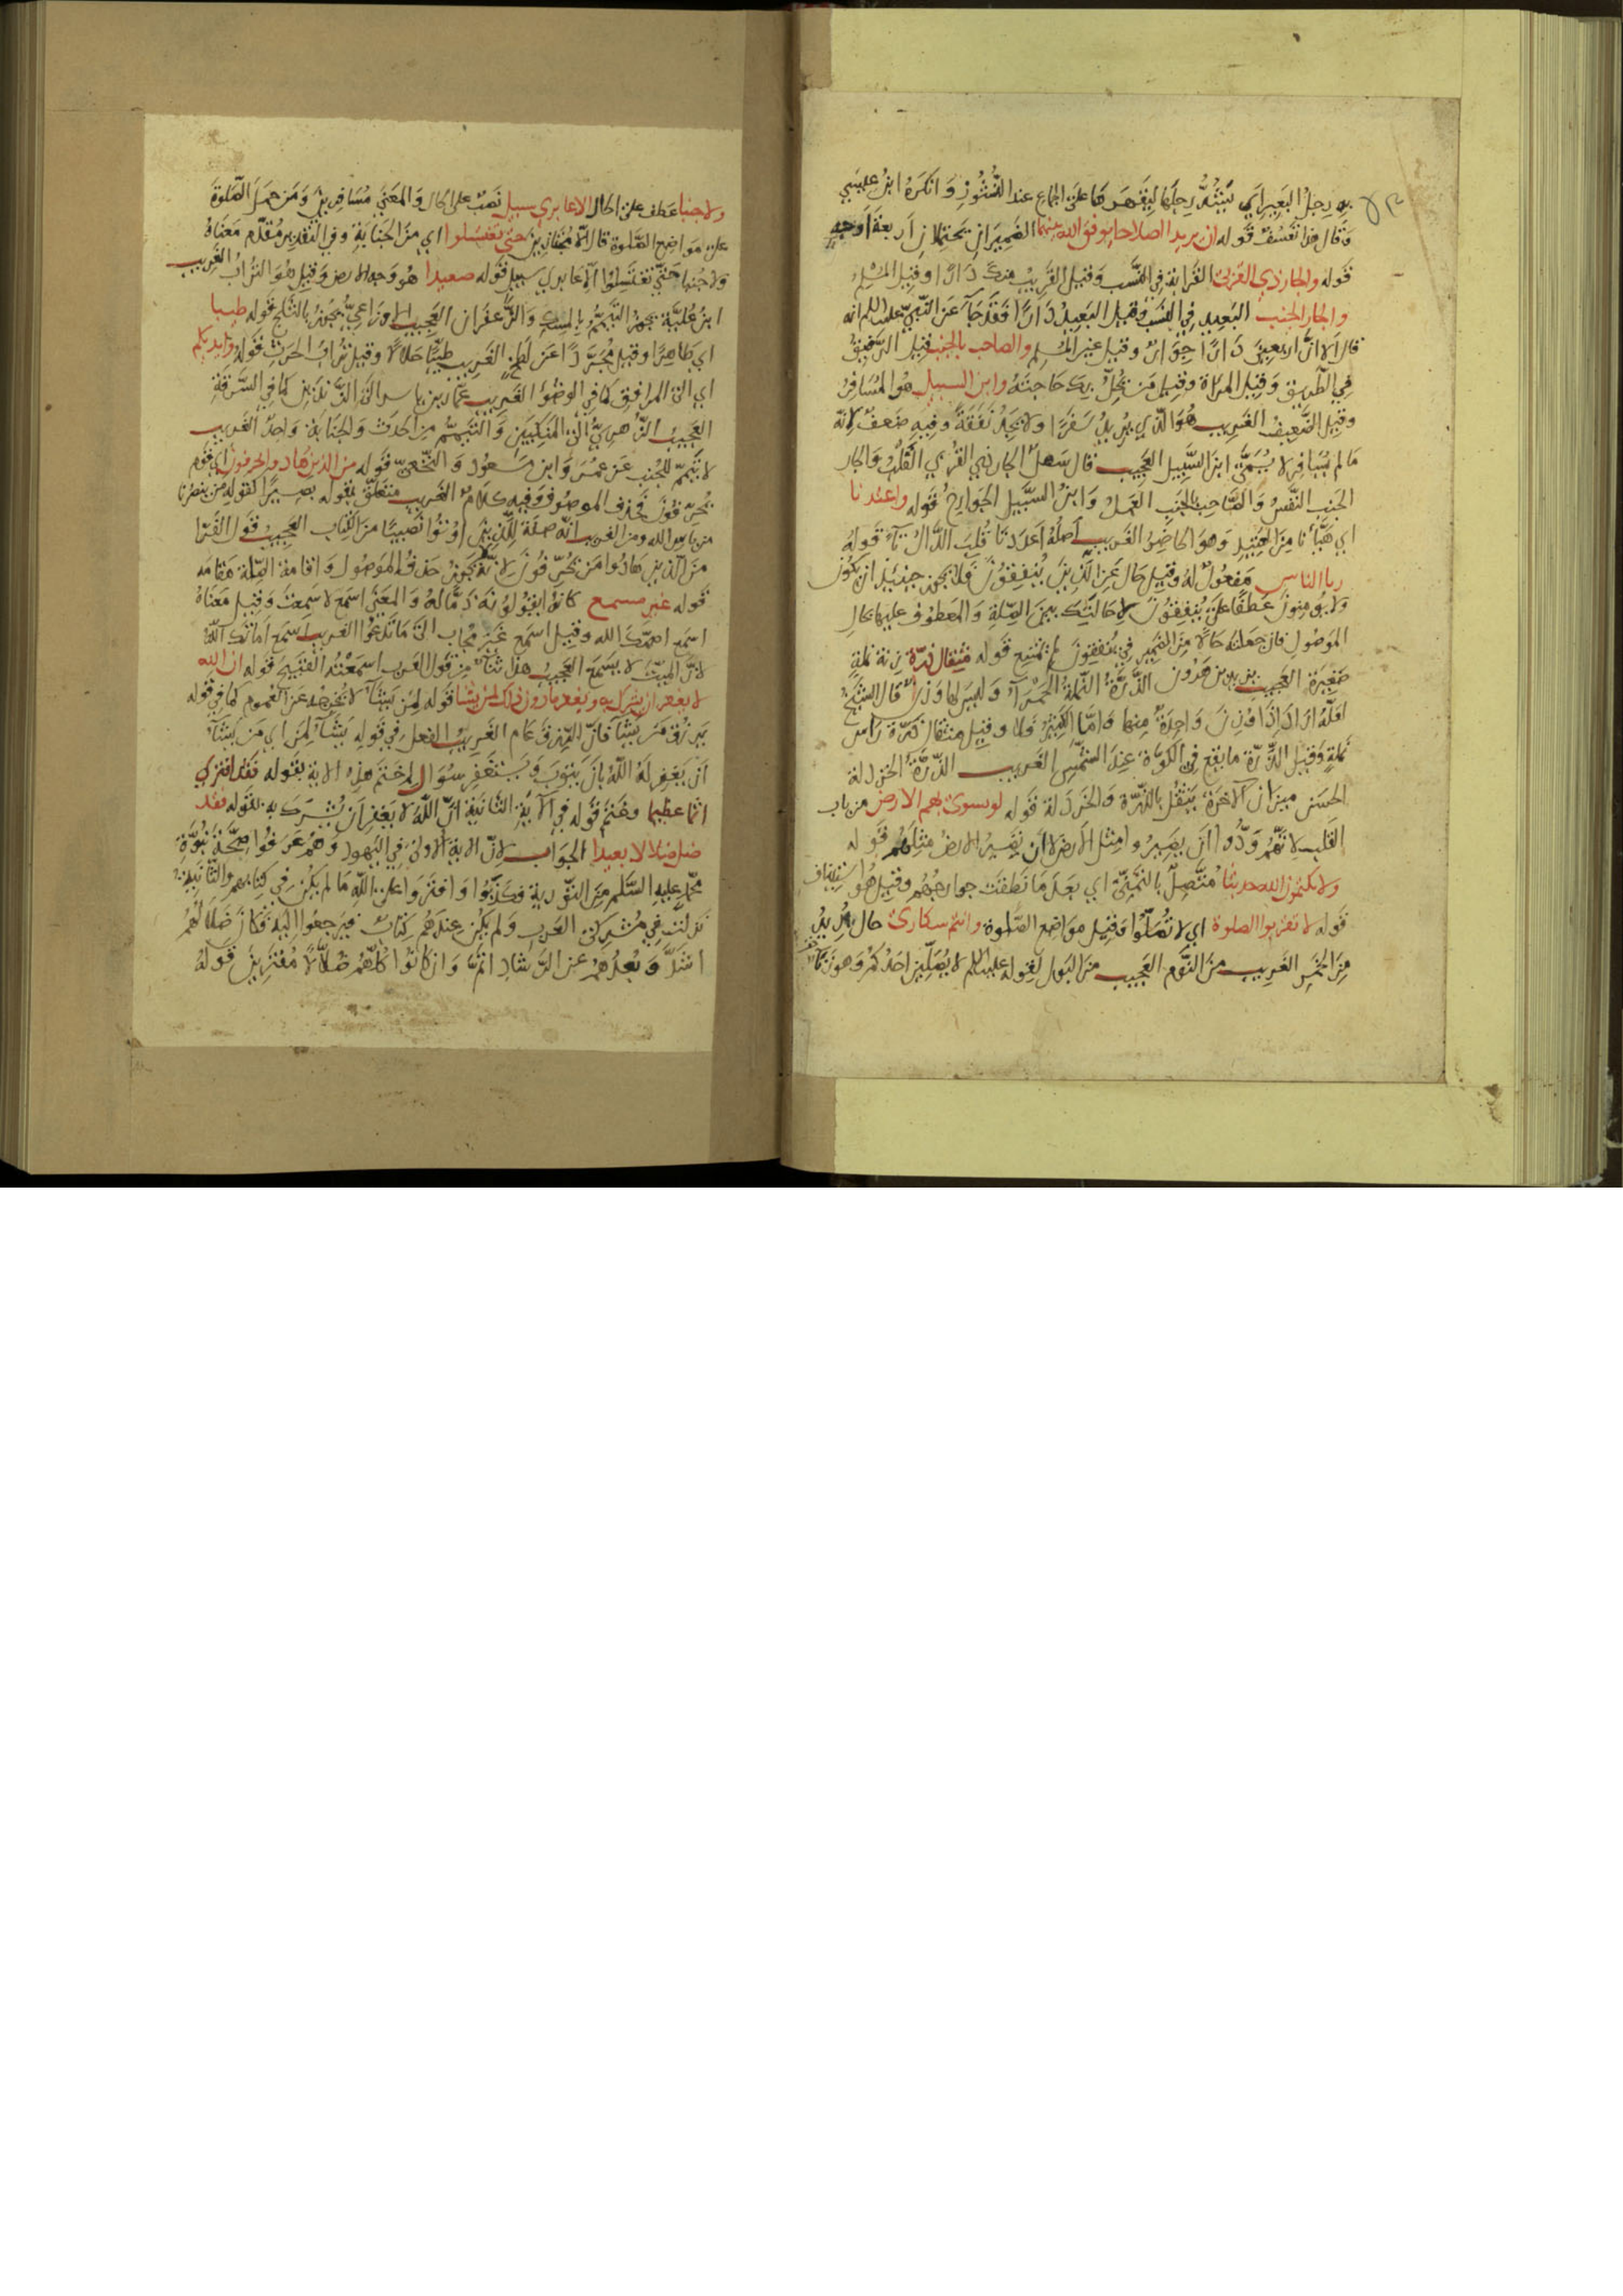 به رجل البعير اي يثبته رجلها ليقهرها على الجماع عند النشوز وانكره ابن عيسى
وقال هذا تعسف قوله ان يريدا اصلاحا يوفق الله بينهما الضميران يحتملان اربعة اوجه
قوله والجار ذي القربى القرابة في النسب وقيل القريب منك دارا وقيل المسلم
والجار الجنب البعيد في النسب وقيل البعيد دارا فقد جآء عن النبي عليه السلم انه
قال الا ان اربعين دارا جوار وقيل غير المسلم والصاحب بالجنب قيل الرفيق
في الطريق وقيل المراة وقيل من يحل بك حاجته وابن السبيل هو المسافر
وقيل الضعيف الغريب هو الذي يريد سفرا ولا يجد نفقة وفيه ضعف لانه
ما لم يسافر لا يسمى ابن السبيل العجيب قال سهل الجار ذي القربى القلب والجار
الجنب النفس والصاحب بالجنب العمل وابن السبيل الجوارح قوله واعتدنا
اي هيأنا من العتيد وهو الحاضر الغريب اصله اعددنا قلبت الدال تآء قوله
ريا الناس مفعول له وقيل حال عن الذين ينفقون فلا يجوز حينئذ ان يكون
ولا يومنون عطفا على ينفقون لا حالتك بين الصلة والمعطوف عليها بحال
الموصول فان جعلته حالا من الضمير في ينفقون لم يمتنع قوله مثقال ذرة زنة نملة
صغيرة العجيب يزيد بن هرون الذرة النملة الحمرآء وليس لها وزن قال الشيخ
لعله اراد اذا وزن واحدة منها واما الكثير فلا وقيل مثقال ذرة راس
نملة وقيل الذرة ما يقع في الكوة عند الشمس الغريب الذرة الخردلة
الحسن ميزان الآخرة يثقل بالذرة والخردلة قوله لو تسوى بهم الارض من باب
القلب لانهم ودوا ان يصيروا مثل الارض لا ان يصير الارض مثلهم قوله
ولا يكتمون الله حديثا متصل بالتمني اي بعد ما نطقت جوارحهم وقيل هو استيناف
قوله لا تقربوا الصلوة اي لا تصلوا وقيل مواضع الصلوة وانتم سكارى حال يريد
من الخمر الغريب من النوم العجيب من البول لقوله عليه السلم لا يصلين احدكم وهو زناء
ولا جنبا عطف على الحال الا عابري سبيل نصب على الحال والمعنى مسافرين ومن حمل الصلوة
على مواضع الصلوة قال الا مجتازين حتى تغتسلوا اي من الجنابة وفي التقدير مقدم معناه
ولا جنبا حتى تغتسلوا الا عابري سبيل قوله صعيدا هو وجه الارض وقيل هو التراب الغريب
ابن علية يجوز التيمم بالمسك والزعفران العجيب الاوزاعي يجوز بالثلج قوله طيبا
اي طاهرا وقيل مجردا عن لطخ الغريب طيبا حلالا وقيل تراب الحرث قوله وايديكم
اي الى المرافق كما في الوضوء الغريب عمار بن ياسر الى الزندين كما في السرقة
العجيب الزهري الى المنكبين والتيمم من الحدث والجنابة واحد الغريب
لا تيمم للجنب عن عمر وابن مسعود والنخعي قوله من الذين هادوا يحرفون اي قوم
يحرفون فحذف الموصوف وفيه كلام الغريب متعلق بقوله نصيرا كقوله من ينصرنا
من باس الله ومن الغريب انه صلة للذين اوتوا نصيبا من الكتاب العجيب قول الفرا
من الذين هادوا من يحرفون لانه يجوز حذف الموصول واقامة الصلة مقامه
قوله غير مسمع كانوا يقولونه ذما له والمعنى اسمع لا سمعت وقيل معناه
اسمع اصمك الله وقيل اسمع غير مجاب الى ما تدعوا الغريب اسمع اماتك الله
لان الميت لا يسمع العجيب هذا ثنآء من قول العرب اسمعته القبيح قوله ان الله
لا يغفر ان يشرك به ويغفر ما دون ذلك لمن يشا قوله لمن يشآء لا تخرجه عن العموم كما في قوله
يرزق من يشآء فان الرزق عام الغريب الفعل في قوله يشآء لمن اي من يشآء
ان يغفر له الله بان يتوب ويستغفر سوال لم ختم هذه الاية بقوله فقد افترى
اثما عظيما وختم قوله في الآية الثانية ان الله لا يغفر ان يشرك به بقوله فقد
ضل ضلالا بعيدا الجواب لان الاية الاولى في اليهود وهم عرفوا صحة نبوة
محمد عليه السلم من التورية فكذبوا وافتروا على الله ما لم يكن في كتابهم والثانية
نزلت في مشركي العرب ولم يكن عندهم كتاب فيرجعوا اليه فكان ضلالهم
اشد وبعدهم عن الرشاد اتم وان كانوا كلهم ضلالا مفترين قوله